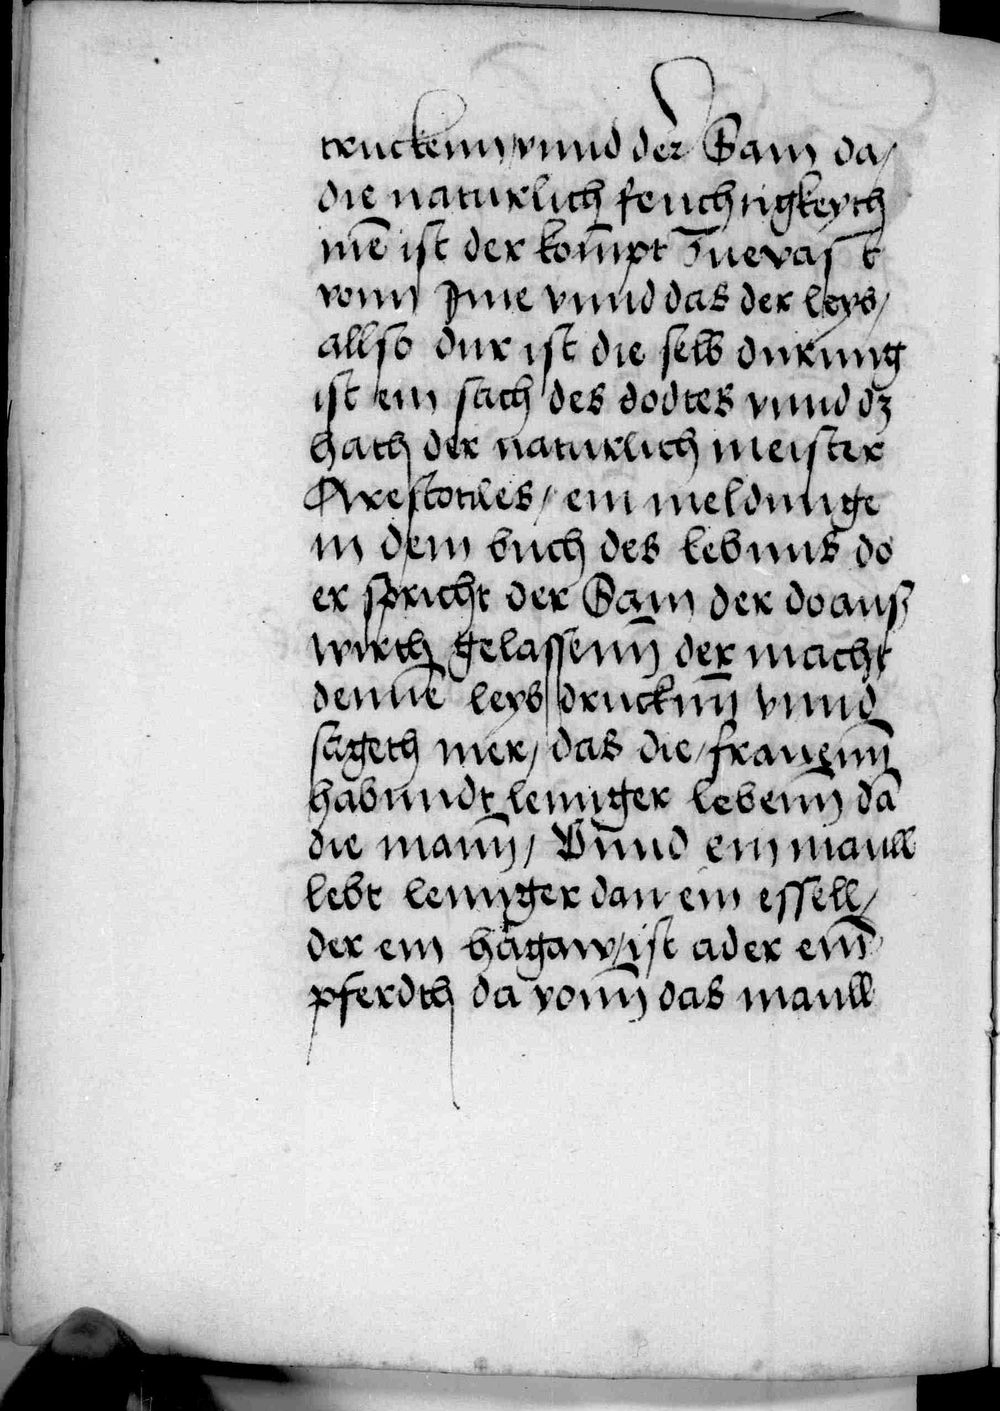 truckenn / vnnd der Sam da /
die naturlich feuchtigkeyth
ine̅ ist der kom̅pt zuevast
vonn Jme vnnd das der leyb /
allso dur ist die selb durung
ist ein sach des dodtes vnnd dz
hath der naturlich meister
Arestotiles / ein meldunge
in dem buch des lebnns do
er spricht der Sam der do auß
wirth gelassenn̅ der macht
denne̅ leyb drucknn̅ vnnd
sageth mer / das die frauenn̅
habnndt lennger lebenn̅ da̅
die mann̅ / Vnnd ein maull
lebt lennger dan ein essell /
der ein hagaw / ist ader ein̅
pferdth da vonn̅ das maull